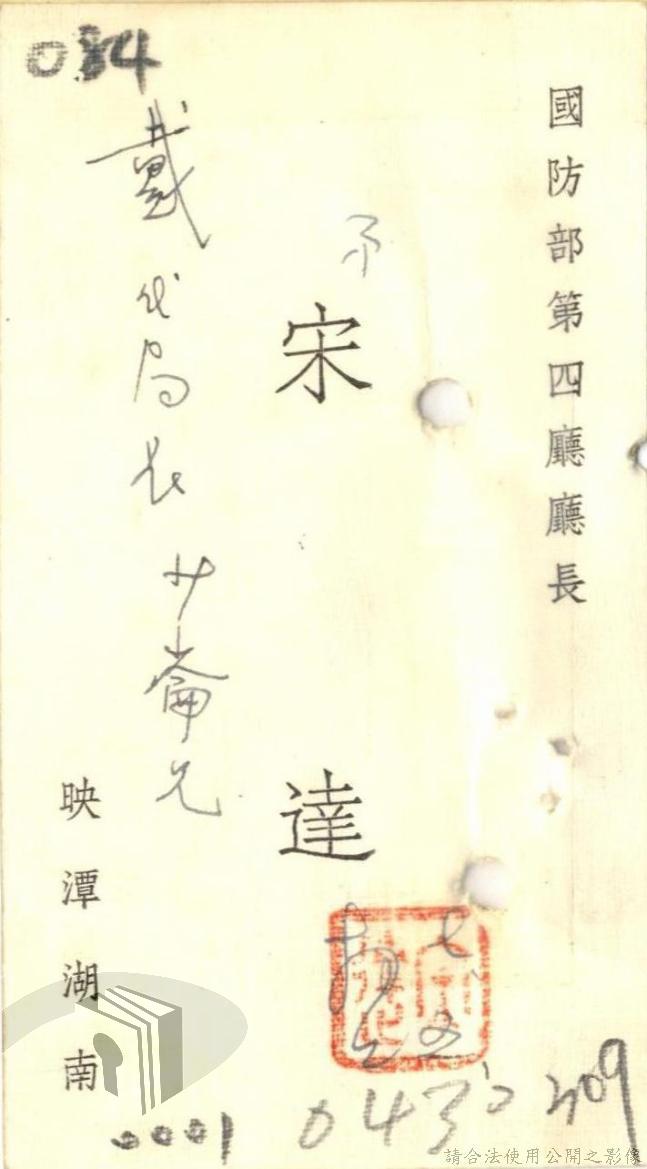 國防部第四廳廳長
弟
宋達
七、五
戴代局長少崙兄
映潭
湖南
034
0001
0430
309
請合法使用公開之影像